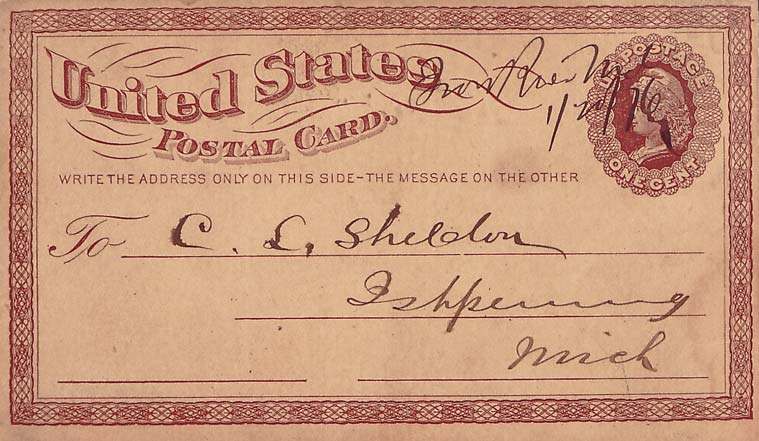 United States
POSTAL CARD.
Iron River Mich
1/20/76
POSTAGE
ONE CENT
WRITE THE ADDRESS ONLY ON THIS SIDE–THE MESSAGE ON THE OTHER
To C. L. Sheldon
Ishpeming
Mich